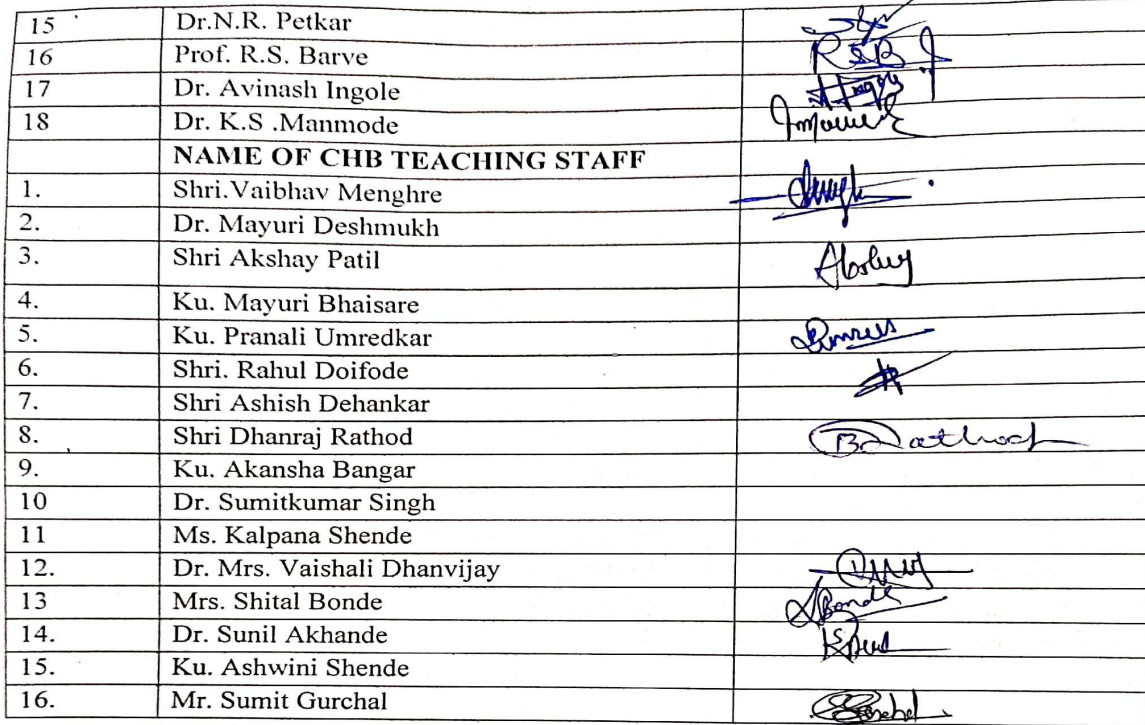 15 Dr.N.R. Petkar
16 Prof. R.S. Barve RSB
17 Dr. Avinash Ingole AIngole
18 Dr. K.S .Manmode
NAME OF CHB TEACHING STAFF
1. Shri.Vaibhav Menghre
2. Dr. Mayuri Deshmukh
3. Shri Akshay Patil
4. Ku. Mayuri Bhaisare
5. Ku. Pranali Umredkar
6. Shri. Rahul Doifode
7. Shri Ashish Dehankar
8. Shri Dhanraj Rathod
9. Ku. Akansha Bangar
10 Dr. Sumitkumar Singh
11 Ms. Kalpana Shende
12. Dr. Mrs. Vaishali Dhanvijay
13 Mrs. Shital Bonde SBonde
14. Dr. Sunil Akhande
15. Ku. Ashwini Shende
16. Mr. Sumit Gurchal